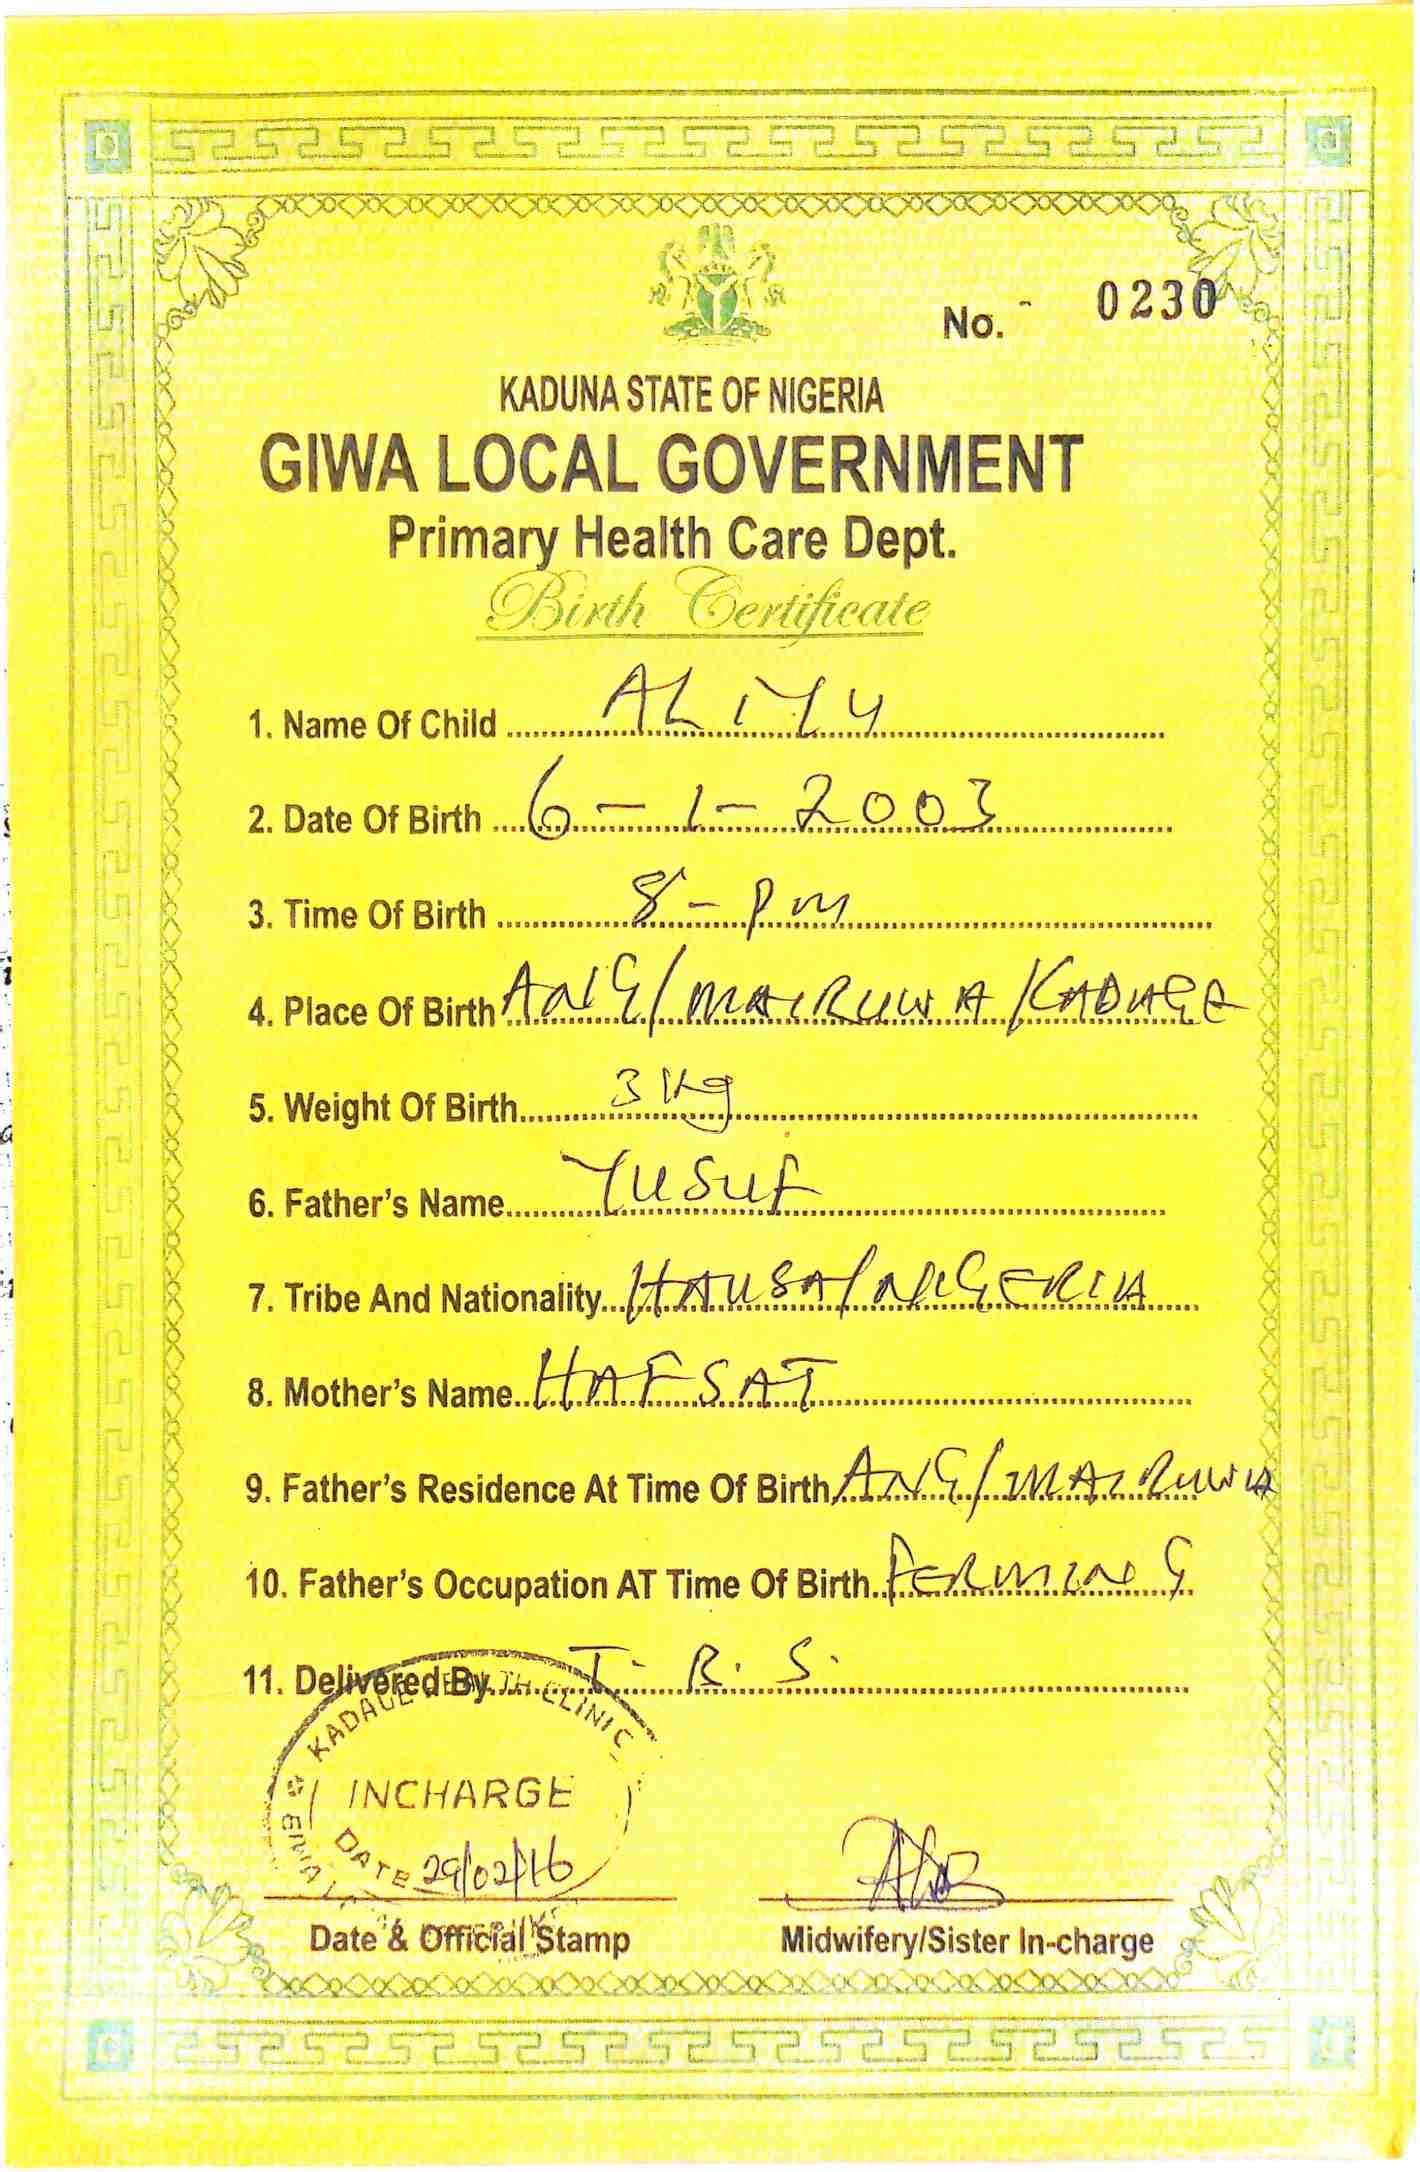 No. - 0230
KADUNA STATE OF NIGERIA
GIWA LOCAL GOVERNMENT
Primary Health Care Dept.
Birth Certificate
1. Name Of Child ALIYU
2. Date Of Birth 6-1-2003
3. Time Of Birth 8-Pm
4. Place Of Birth ANG/MAIRUWA/KADAGE
5. Weight Of Birth 3Kg
6. Father's Name YUSUF
7. Tribe And Nationality HAUSA/NIGERIA
8. Mother's Name HAFSAT
9. Father's Residence At Time Of Birth ANG/MAIRUWA
10. Father's Occupation AT Time Of Birth FERMING
11. Delivered By T. B. S.
KADAGE HEALTH CLINIC
INCHARGE
DATE 29/02/16
Date & Official Stamp Midwifery/Sister In-charge